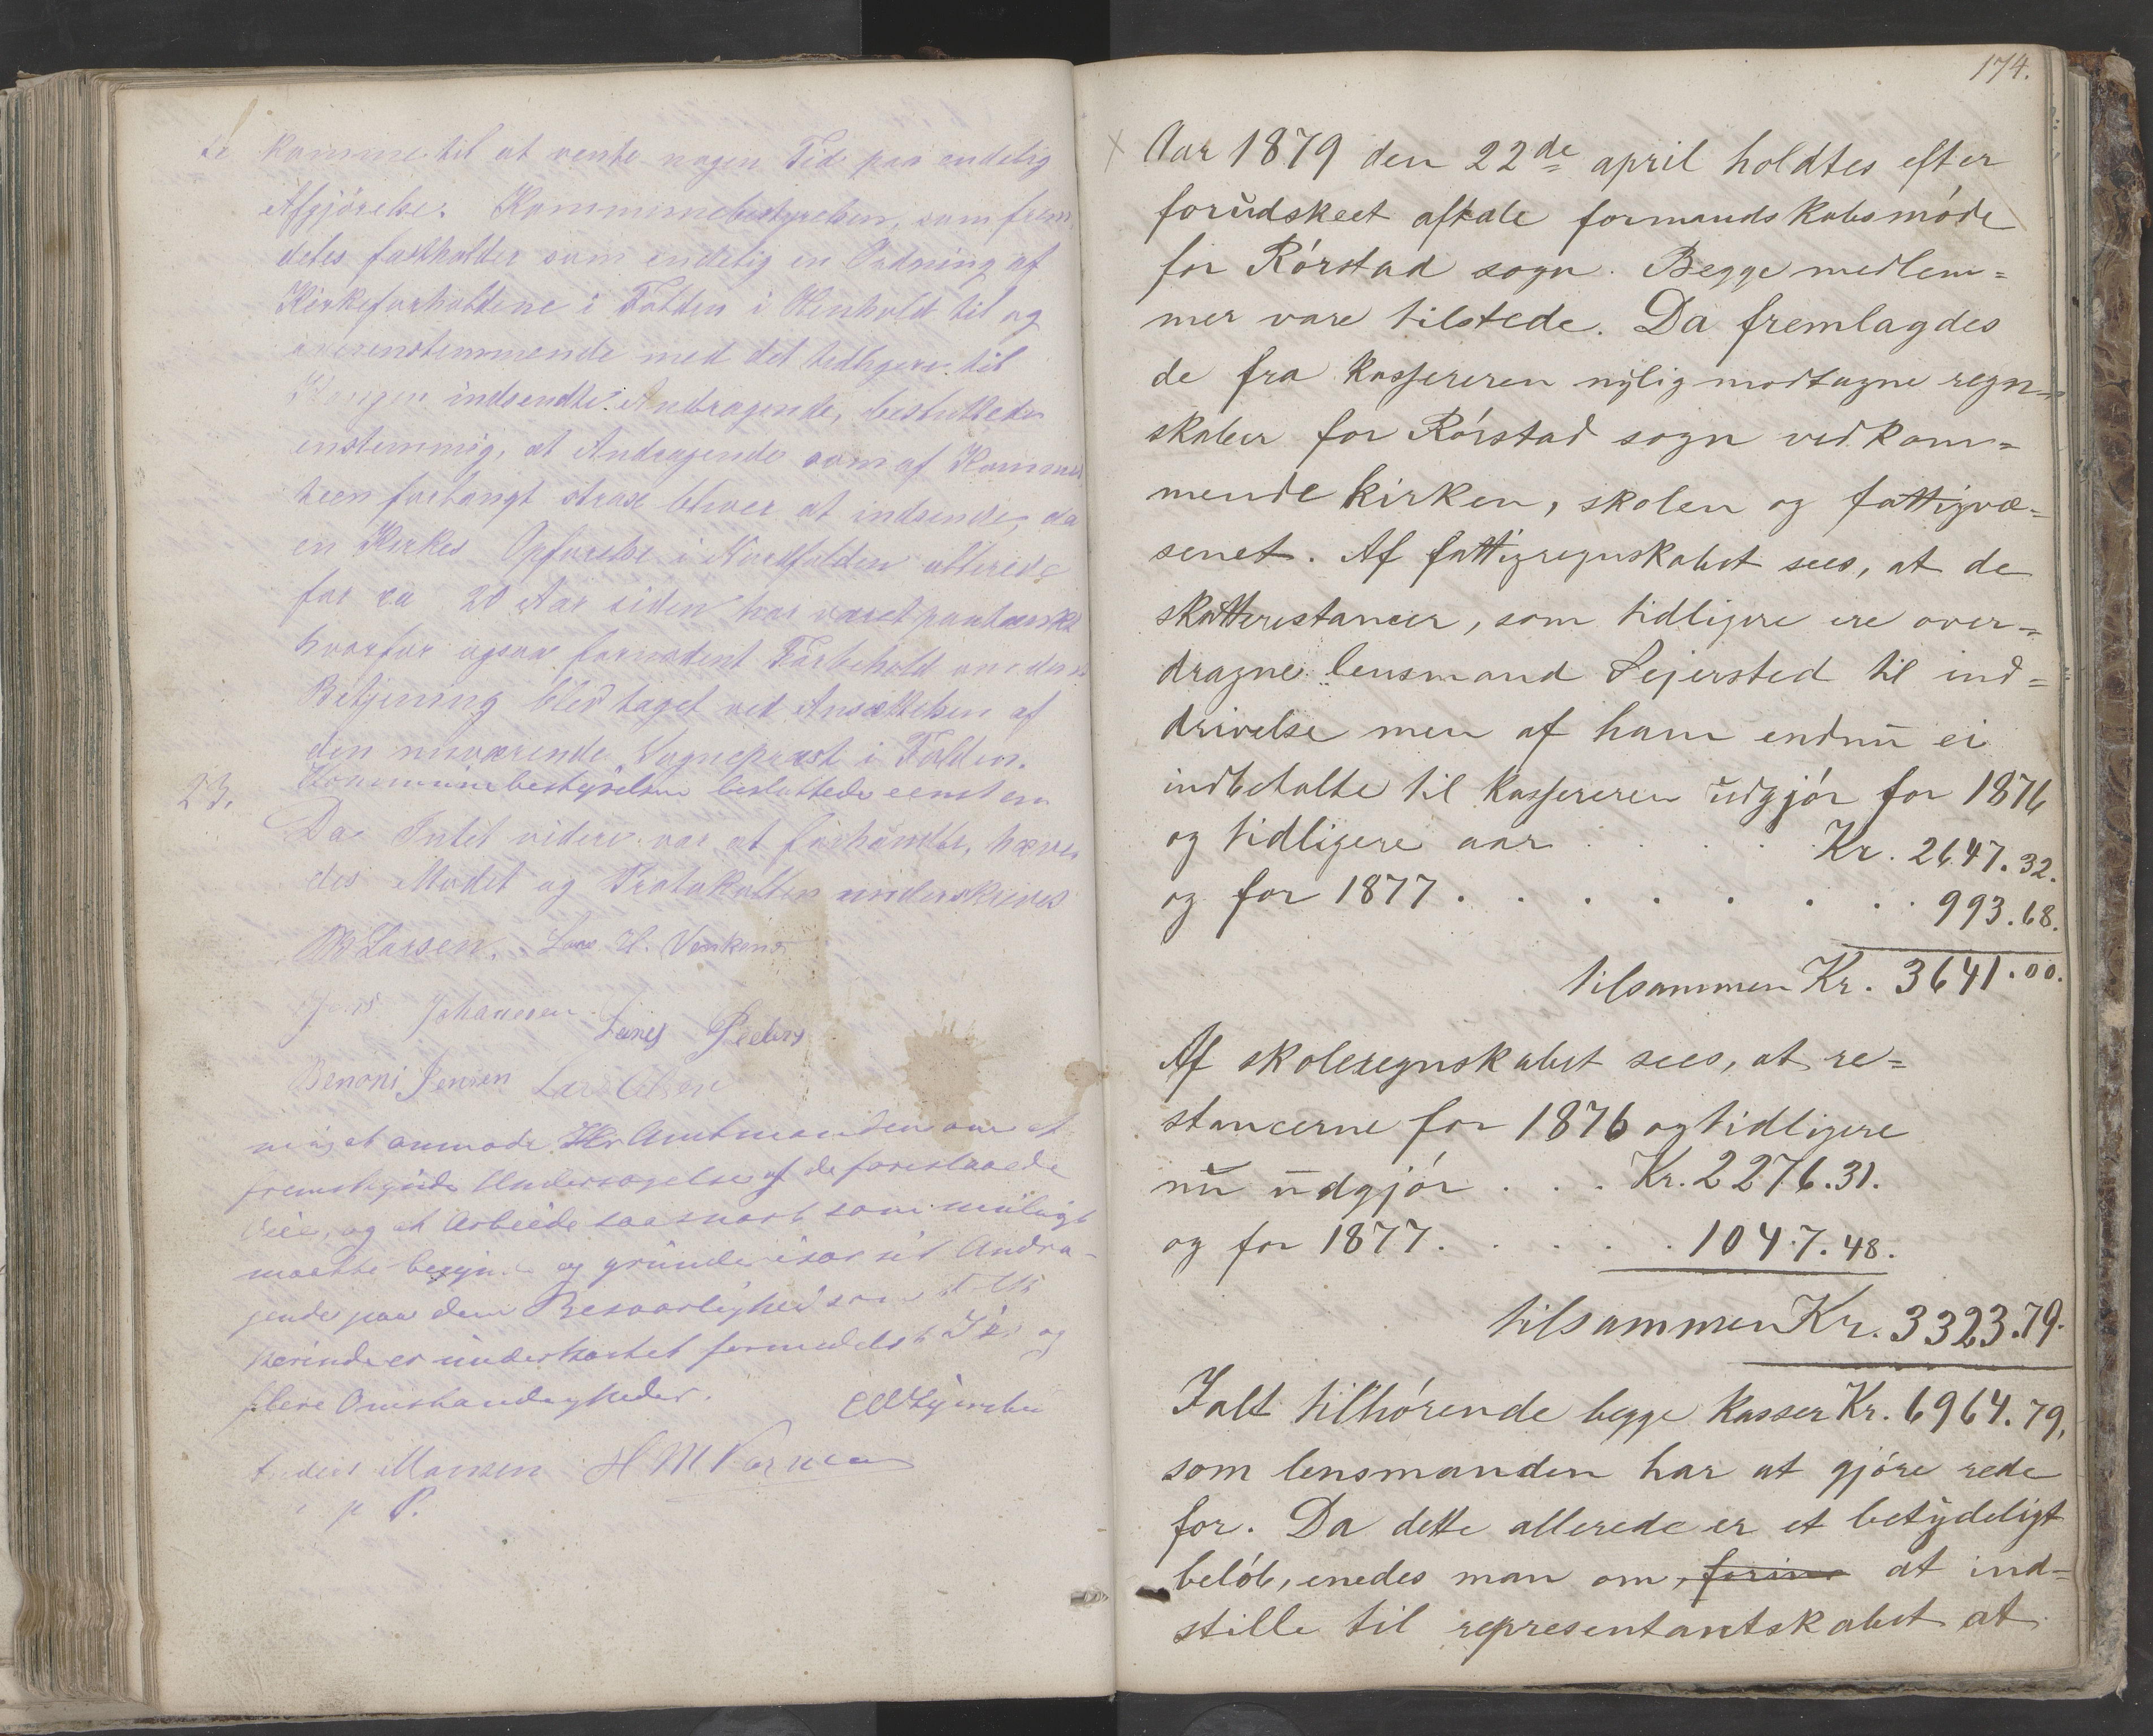 komme til at vente nogen Tid paa endelig
Afgjörelse. Kommunebestyrelsen, som frem
deles fastholder som endelig en Ordning af
Kirkeforholdene i Folden i Henhold til og
overenstemmende med det tidligere til
Kongen indsendte Andragende, besluttede
enstemmig, at Andragende som af Kommi
teen forlangt strax bliver at indsende, da
en Kirkes Opførelse i Nordfolden allerede
for ca 20 Aar siden har været paatænkt
hvorfor ogsaa fornødent Forbehold om dens
Betjening blev taget ved Ansættelsen af
den nuværende Sogneprest i Folden.
23. Kommunebestyrelsen besluttede eenstem
Da Intet videre var at forhandle, hæve
des Mødet og Protokollen underskreves
Larsen. Lars H. Venkens
Jens Johansen
Benoni Jensen Lars Olsen
mig at anmode Hr Amtmanden om at
fremskynde Undersøgelse af de foreslaaede
Veie, og at Arbeide saasnart som muligt
maatte begynde og grunder især sit Andra-
gende paa den Besværlighed som
er underkastet formedelst Is og
flere Omstændigheder.
Monsen H M
p P.
174.
Aar 1879 den 22de april holdtes efter
forudskeet aftale formandskabsmóde
for Rórstad sogn. Begge medlem=
mer vare tilstede. Da fremlagdes
de fra kassereren nylig modtagne regn=
skaber for Rórstad sogn vedkom=
mende kirken, skolen og fattigvæ=
senet. Af fattigregnskabet sees, at de
skatterestancer, som tidligere ere over=
dragne lensmand Lejersted til ind=
drivelse men af ham endnu ei
indbetalte til kassereren udgjór for 1876
og tidligere aar . . . . Kr. 2647.32.
og for 1877 . . . . . . . 993.68.
tilsammen Kr. 3641.00.
Af skoleregnskabet sees, at re=
stancerne for 1876 og tidligere
nu udgjór . . . Kr. 2276.31.
og for 1877. . . . . . 1047.48.
tilsammen Kr. 3323.79.
Ialt tilhórende begge kasser Kr. 6964.79,
som lensmanden har at gjóre rede
for. Da dette allerede er et betydeligt
belób, enedes man om, at ind=
stille til representantskabet at